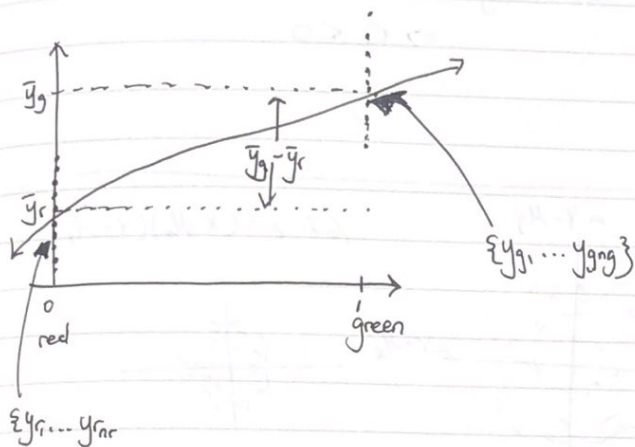 ȳg
ȳg - ȳr
ȳr
{yg1 ... ygng}
0
1
red
green
{yr1 ... yrnr